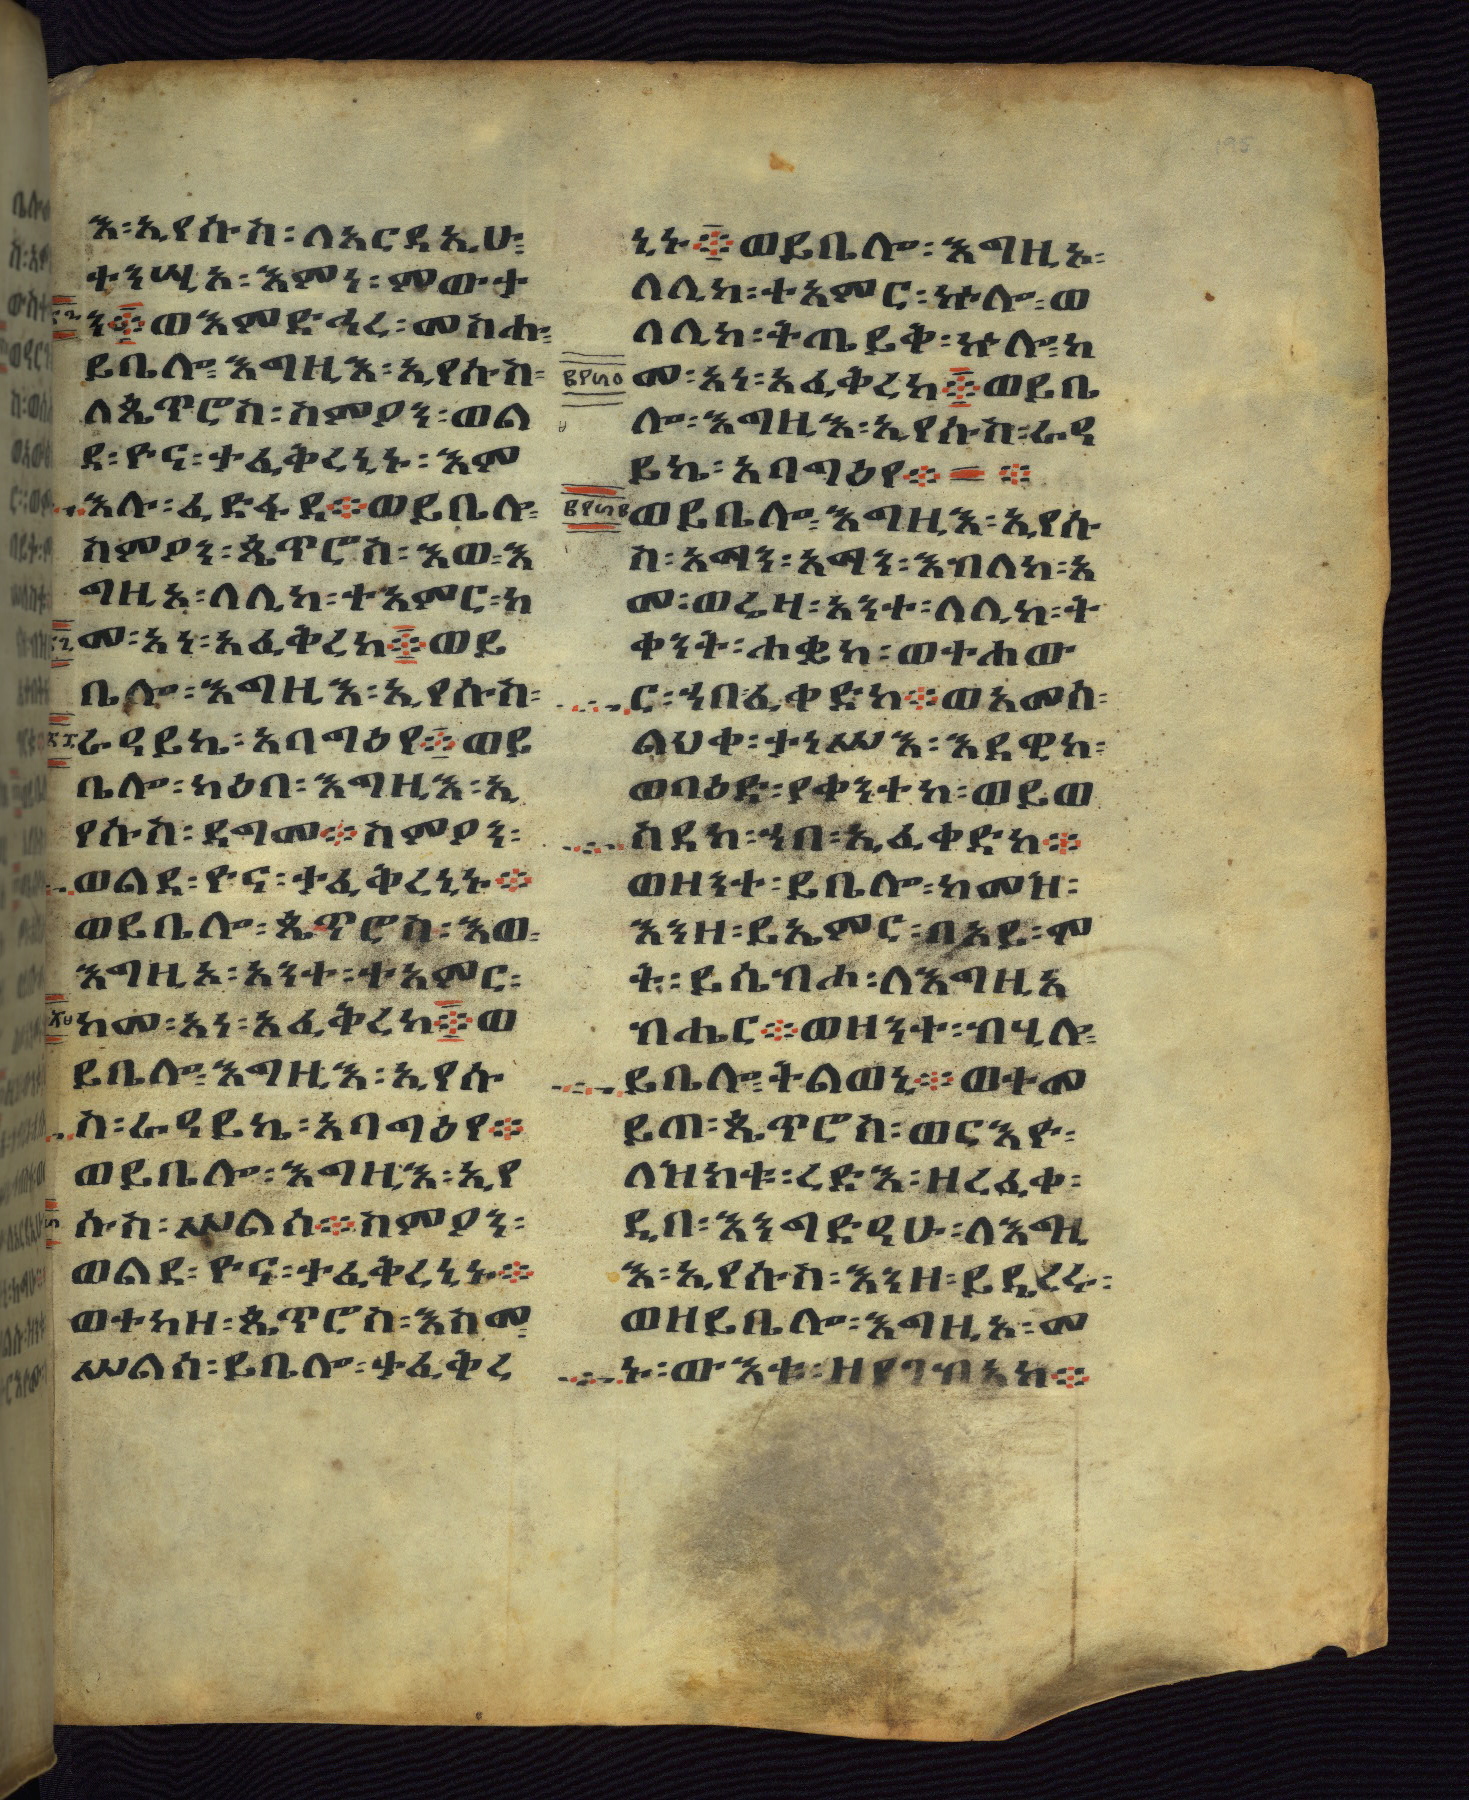 እ፡ኢየሱስ፡ለአርዳኢሁ፡
ተንሢአ፡እምነ፡ምውታ
ን፨ወእምድኅረ፡መስሐ፡
ይቤሎ፡እግዚእ፡ኢየሱስ፡
ለጴጥሮስ፡ስምዖን፡ወል
ደ፡ዮና፡ታፈቅረኒኑ፡እም
እሉ፡ፈድፋደ፨ወይቤሎ፡
ስምዖን፡ጴጥሮስ፡እወ፡እ
ግዚኦ፡ለሊከ፡ተአምር፡ከ
መ፡አነ፡አፈቅረከ፨ወይ
ቤሎ፡እግዚእ፡ኢየሱስ፡
ራዳይኬ፡አባግዕየ፨ወይ
ቤሎ፡ካዕበ፡እግዚእ፡ኢ
የሱስ፡ዳግመ፨ስምዖን፡
ወልደ፡ዮና፡ታፈቅረኒኑ፨
ወይቤሎ፡ጴጥሮስ፡እወ፡
እግዚኦ፡አንተ፡ተአምር፡
ከመ፡አነ፡አፈቅረከ፨ወ
ይቤሎ፡እግዚእ፡ኢየሱ
ስ፡ራዳይኬ፡አባግዕየ፨
ወይቤሎ፡እግዚእ፡ኢየ
ሱስ፡ሣልስ፨ስምዖን፡
ወልደ፡ዮና፡ታፈቅረኒኑ፨
ወተከዘ፡ጴጥሮስ፡እስመ፡
ሣልስ፡ይቤሎ፡ታፈቅረ
ኒኑ፨ወይቤሎ፡እግዚኦ፡
ለሊከ፡ተአምር፡ኵሎ፡ወ
ለሊከ፡ትጤይቅ፡ኵሎ፡ከ
መ፡አነ፡አፈቅረከ፨ወይቤ
ሎ፡እግዚእ፡ኢየሱስ፡ራዳ
ይኬ፡አባግዕየ፨ ፨
ወይቤሎ፡እግዚእ፡ኢየሱ
ስ፡አማን፡አማን፡እብለከ፡አ
መ፡ወሬዛ፡አንተ፡ለሊከ፡ት
ቀንት፡ሐቌከ፡ወተሐው
ር፡ኀበ፡ፈቀድከ፨ወአመሰ፡
ልህቀ፡ታነሥእ፡እደዊከ፡
ወባዕድ፡ያቀንተከ፡ወይወ
ስደከ፡ኀበ፡ኢፈቀድከ፨
ወዘንተ፡ይቤሎ፡ከመዝ፡
እንዘ፡ይኤምር፡በአይ፡ሞ
ት፡ይሴብሖ፡ለእግዚአ
ብሔር፨ወዘንተ፡ብሂሎ፡
ይቤሎ፡ትልወኒ፨ወተመ
ይጠ፡ጴጥሮስ፡ወርእዮ፡
ለዝክቱ፡ረድእ፡ዘረፈቀ፡
ዲበ፡እንግድዓሁ፡ለእግዚ
እ፡ኢየሱስ፡እንዘ፡ይዴረሩ፡
ወዘይቤሎ፡እግዚኦ፡መ
ኑ፡ውእቱ፡ዘያገብአከ፨